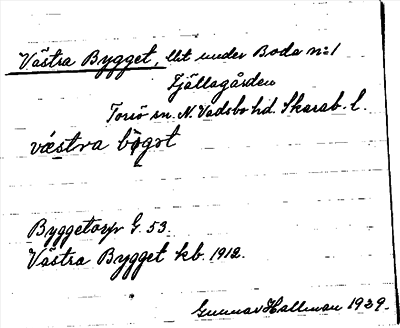 Västra Bygget, lht under Boda n:1
Fjällagården
Torsö sn. N. Vadsbo hd. Skarab. l.
væstra bȳgət
Byggetorp G. 53.
Västra Bygget kb. 1912.
Gunnar Hallman 1929.